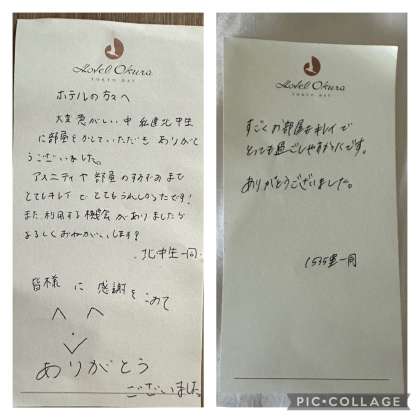 Hotel Okura
TOKYO BAY
ホテルの方々へ
大変忙しい中 私達北中生
に部屋をかしていただき ありがと
うございました。
アメニティや 部屋のすみずみまで
とてもキレイで とてもうれしかったです!
また 利用する機会がありましたら
よろしくおねがいします!
北中生一同
皆様 に 感謝を こめて
ありがとう
ございました
Hotel Okura
TOKYO BAY
すごくお部屋もキレイで
とっても過ごしやすかったです。
ありがとうございました。
一同
PIC•COLLAGE